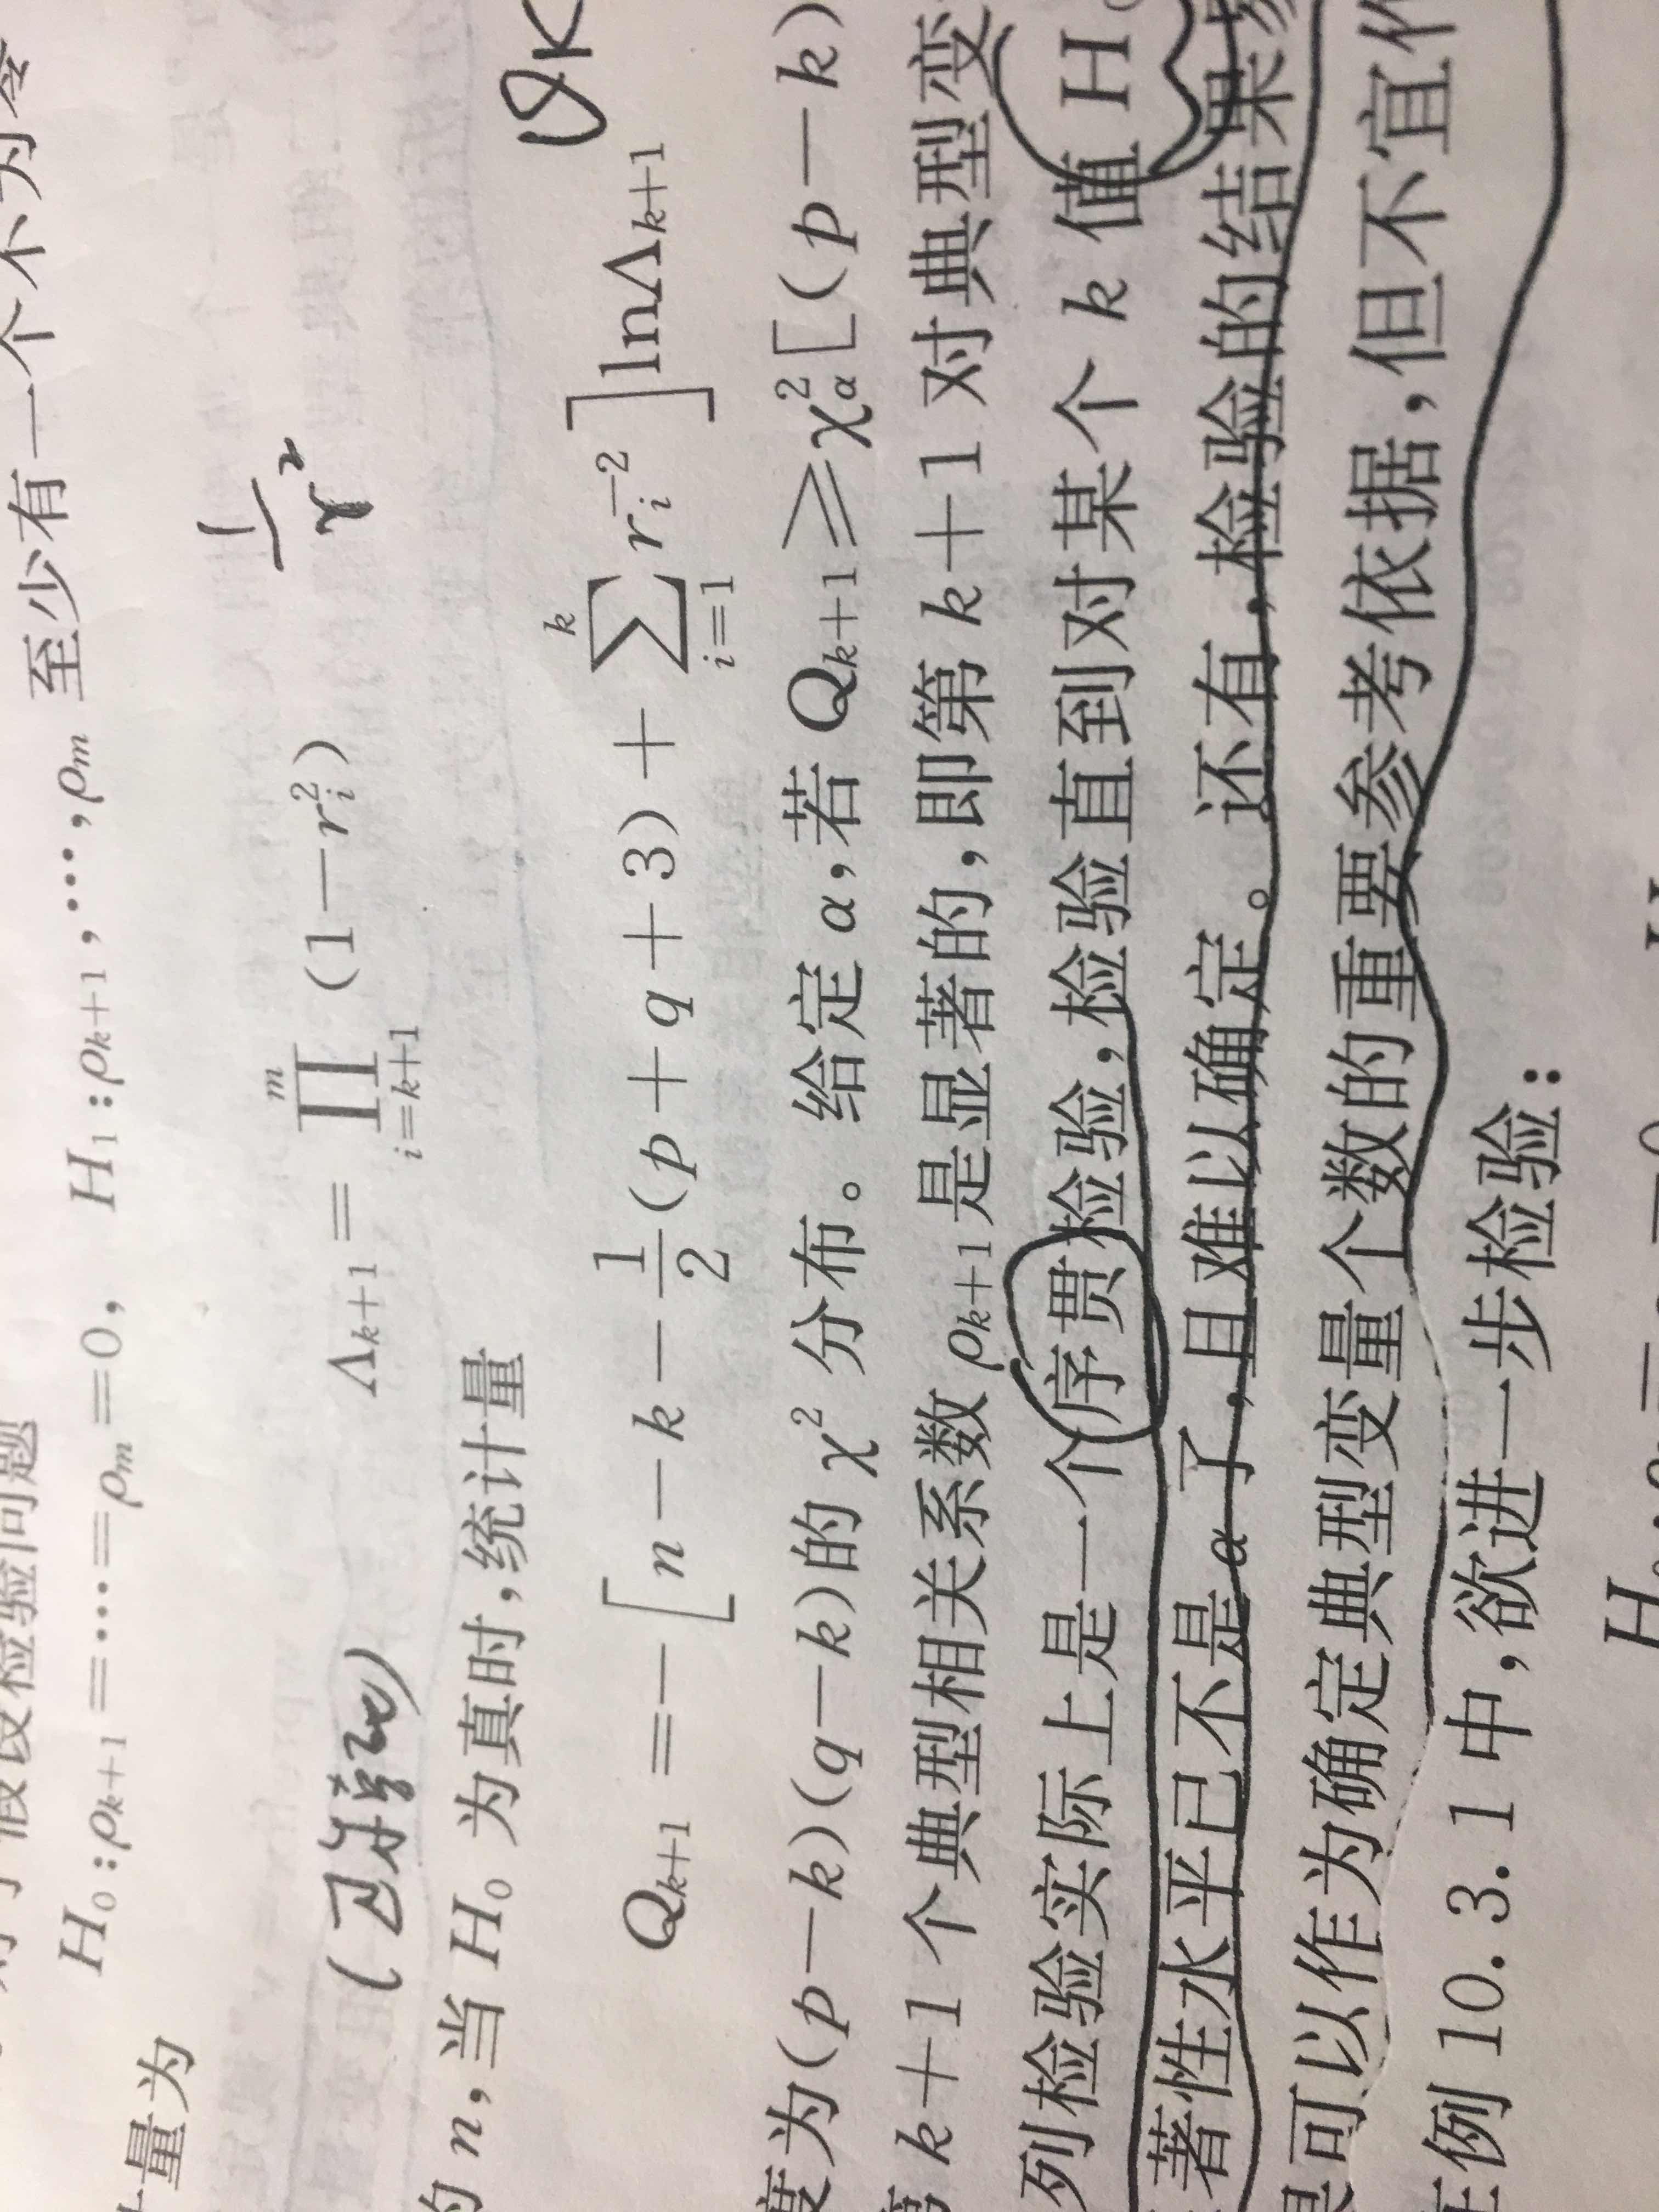 假设检验问题
H₀:ρₖ₊₁=⋯=ρₘ=0, H₁:ρₖ₊₁,⋯,ρₘ 至少有一个不为零
量为
Λₖ₊₁=∏ᵢ₌ₖ₊₁ᵐ(1−rᵢ²)
1/r²
的 n,当 H₀ 为真时,统计量
Qₖ₊₁=−[n−k−1/2(p+q+3)+∑ᵢ₌₁ᵏ rᵢ⁻²]lnΛₖ₊₁
度为(p−k)(q−k)的 χ² 分布。给定 α,若 Qₖ₊₁≥χ²_α[(p−k)
第 k+1 个典型相关系数 ρₖ₊₁ 是显著的,即第 k+1 对典型变
列检验实际上是一个序贯检验,检验直到对某个 k 值 H
著性水平已不是 α 了,且难以确定。还有,检验的结果易
可以作为确定典型变量个数的重要参考依据,但不宜作
在例 10.3.1 中,欲进一步检验: